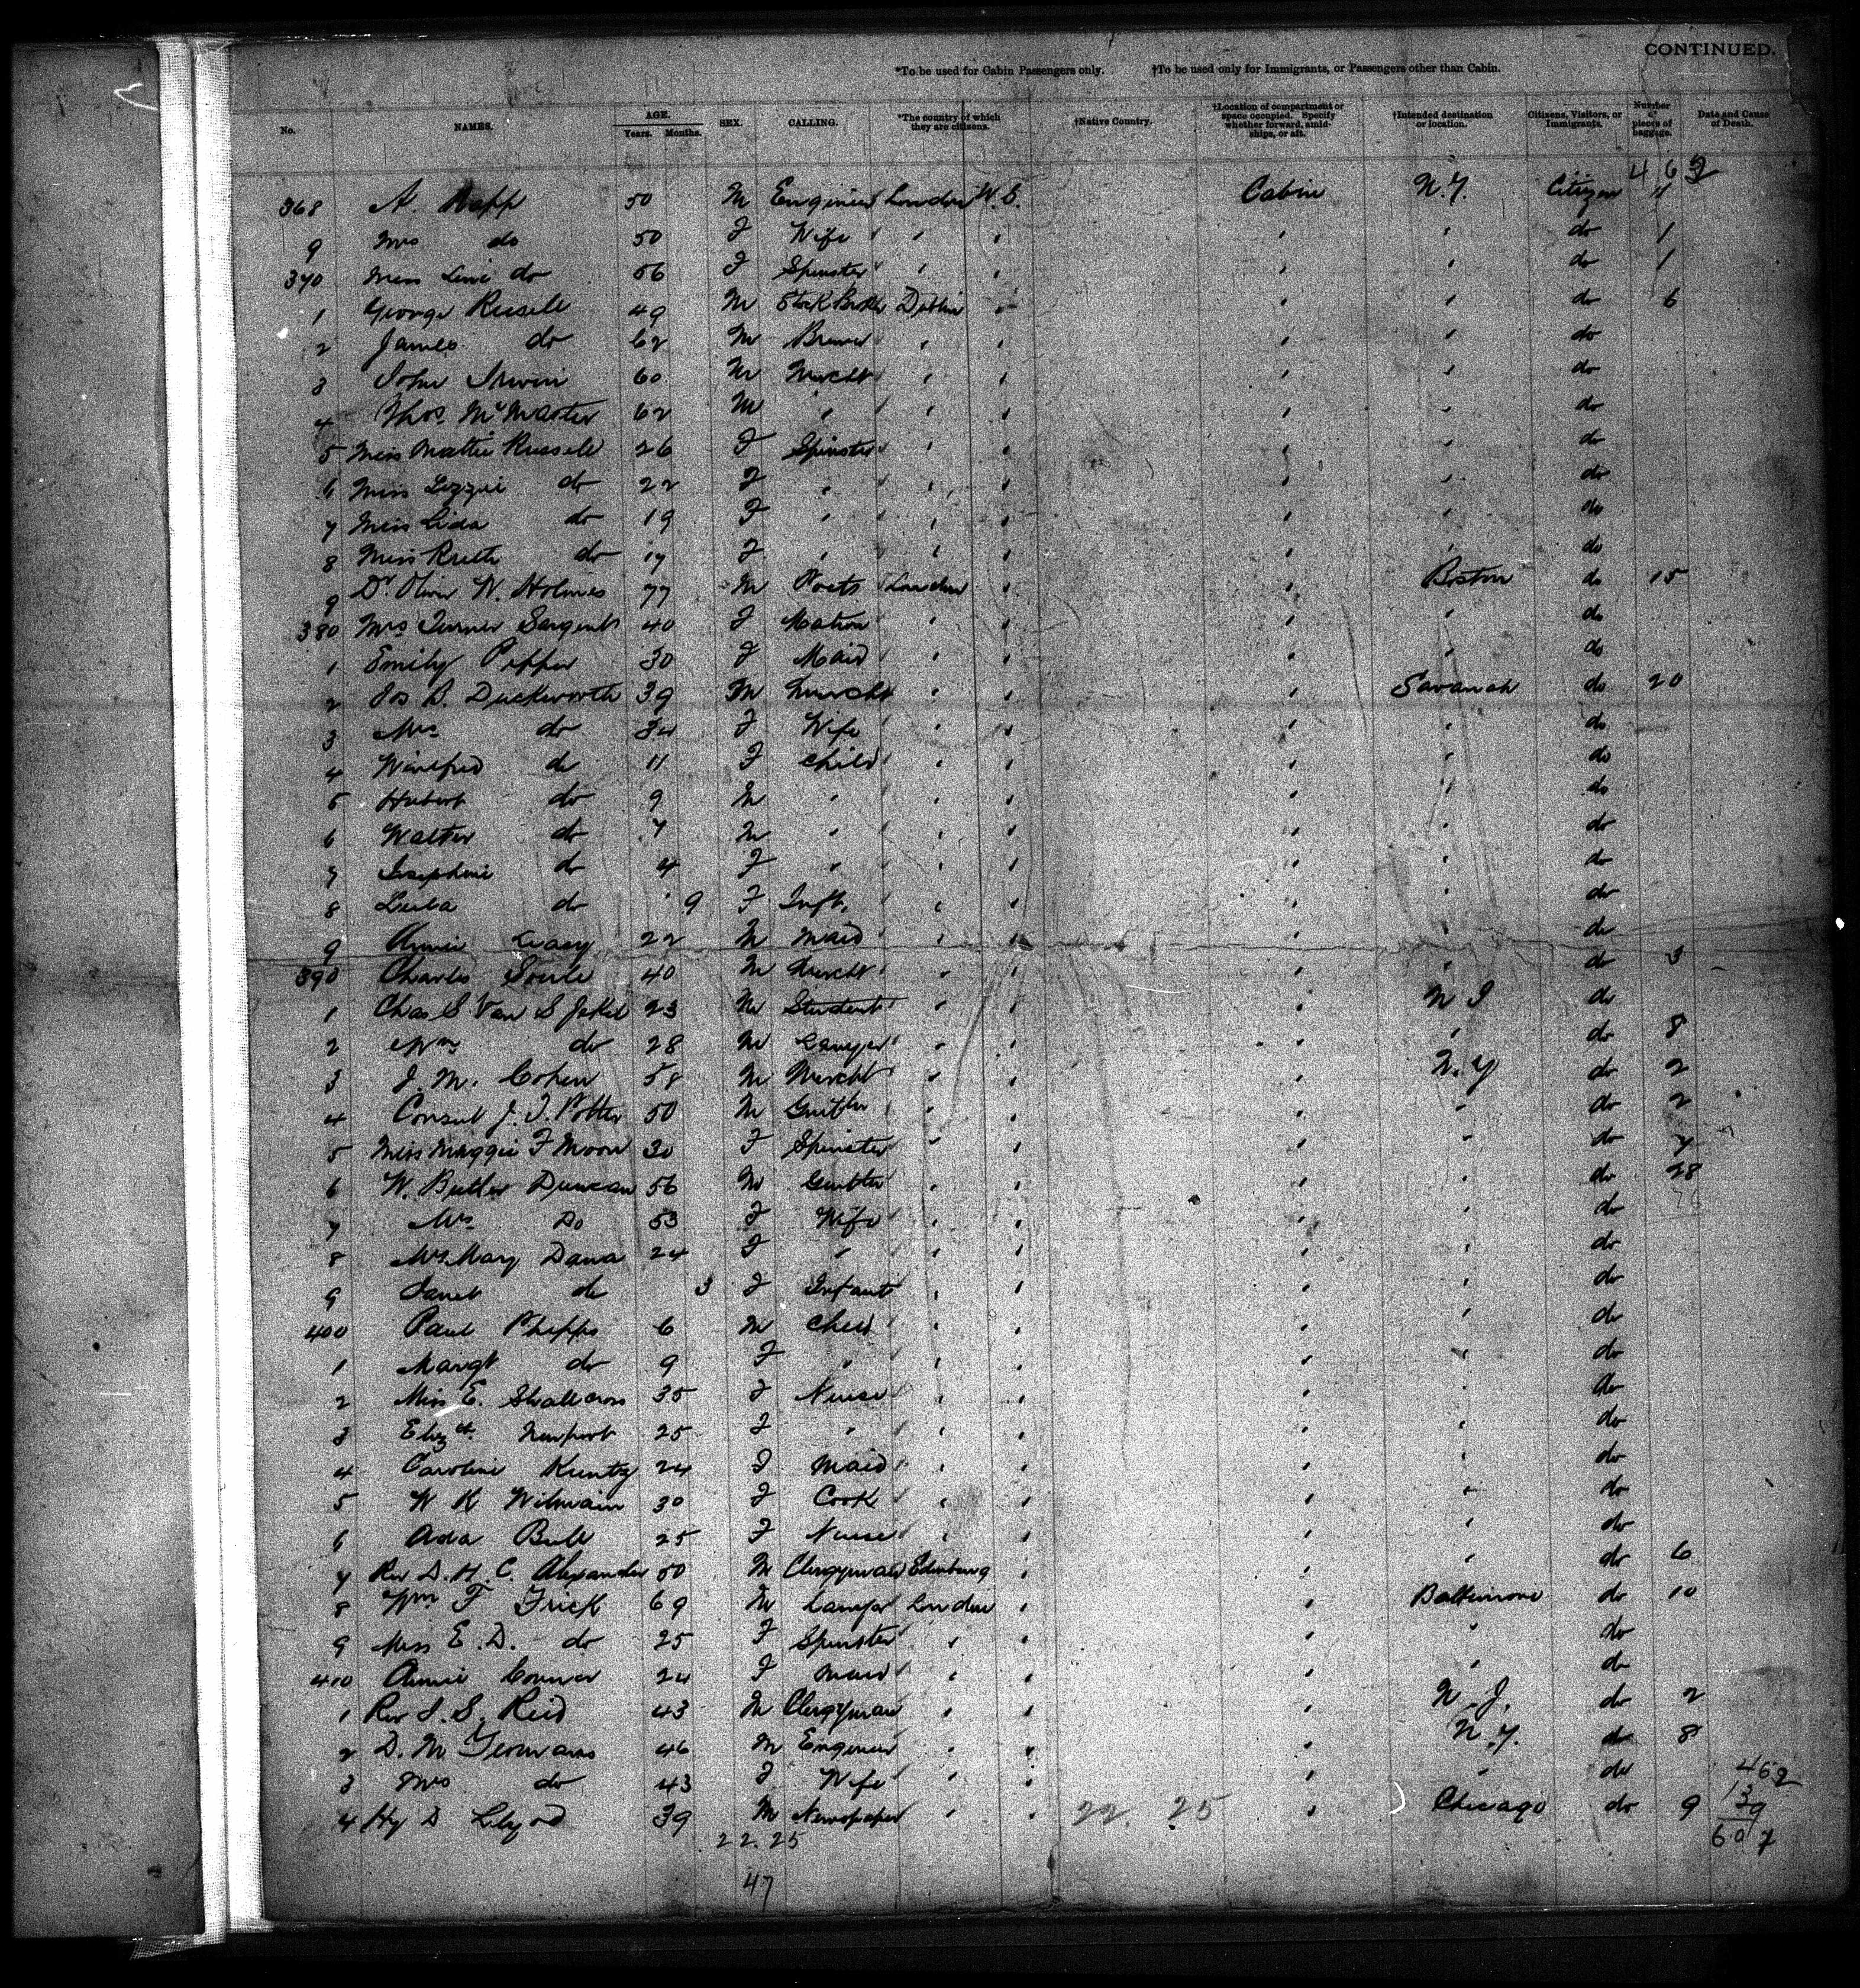 CONTINUED.
*To be used for Cabin Passengers only. †To be used only for Immigrants, or Passengers other than Cabin.
No. NAMES. AGE. Years. Months. SEX. CALLING. *The country of which they are citizens. †Native Country. †Location of compartment or space occupied. Specify whether forward, amidships, or aft. †Intended destination or location. Citizens, Visitors, or Immigrants. Number of pieces of baggage. Date and Cause of Death.
462
368 A. Rapp 50 M Engineer London U.S. Cabin N.Y. Citizen
9 Mrs do 50 F Wife " " " " do 1
370 Miss do 56 F Spinster " " " " do 1
1 George Russell 49 M Stock Broker Dublin " " " do 6
2 James do 62 M " " " " do
3 John Irwin 60 M Mercht " " " " do
4 Thos. McMaster 62 M " " " " " do
5 Miss Mattie Russell 26 F Spinster " " " " do
6 Miss Lizzie do 22 F " " " " " do
7 Miss Lida do 19 F " " " " " do
8 Miss Ruth do 17 F " " " " " do
9 Dr. Oliver W. Holmes 77 M Poets London " " Boston do 15
380 Mrs Turner Sargent 40 F Matron " " " " do
1 Emily Pepper 30 F Maid " " " " do
2 Jos B. Duckworth 39 M Mercht " " " Savanah do 20
3 Mrs do 34 F Wife " " " " do
4 Winifred do 11 F Child " " " " do
5 Hubert do 9 M " " " " " do
6 Walter do 7 M " " " " " do
7 Josephine do 4 F " " " " " do
8 Leila do 9 F Inft. " " " " do
9 Annie Leary 22 M Maid " " " " do
390 Charles Soule 40 M Mercht " " " " do 3
1 Chas S Van S 23 M Student " " " N J do
2 Wm do 28 M Lawyer " " " " do 8
3 J. M. Cohen 58 M Mercht " " " N.Y do 2
4 Consul J. T. Potter 50 M " " " " do 2
5 Miss Maggie F Moon 30 F Spinster " " " " do 7
6 W. Butler Duncan 56 M " " " " do 28
7 Mrs Do 53 F Wife " " " " do
8 Mrs Mary Dana 24 F " " " " " do
9 Janet do 3 F Infant " " " " do
400 Paul Phipps 6 M Child " " " " do
1 Margt do 9 F " " " " " do
2 Miss E. Shallcross 35 F Nurse " " " " do
3 Elizth. Newport 25 F " " " " " do
4 Caroline Kuntz 24 F Maid " " " " do
5 W K 30 F Cook " " " " do
6 Ada Bull 25 F Nurse " " " " do
7 Rev D. H. C. Alexander 50 M Clergyman Edinburg " " " do 6
8 Wm F Frick 69 M Lawyer London " " Baltimore do 10
9 Miss E. D. do 25 F Spinster " " " " do
410 Annie Connor 24 F Maid " " " " do
1 Rev J. S. Reid 43 M Clergyman " " " N.J. do 2
2 D. M. Yeomans 46 M Engineer " " " N.Y. do 8
3 Mrs do 43 F Wife " " " " do
4 Hy D 39 M Newspaper " " 22 25 " Chicago do 9
462
139
607
22.25
47